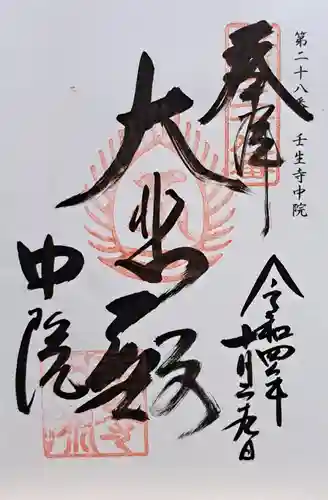 第二十八番 壬生寺中院
奉拝
大悲殿
中院
令和四年
十月二十九日